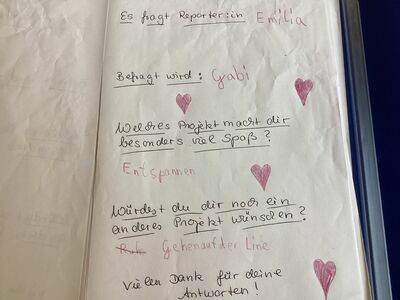 Es fragt Reporter:in Emilia
Befragt wird: Gabi
Welches Projekt macht dir
besonders viel Spaß?
Entspannen
Würdest du dir noch ein
anderes Projekt wünschen?
Gehen auf der Line
Vielen Dank für deine
Antworten!